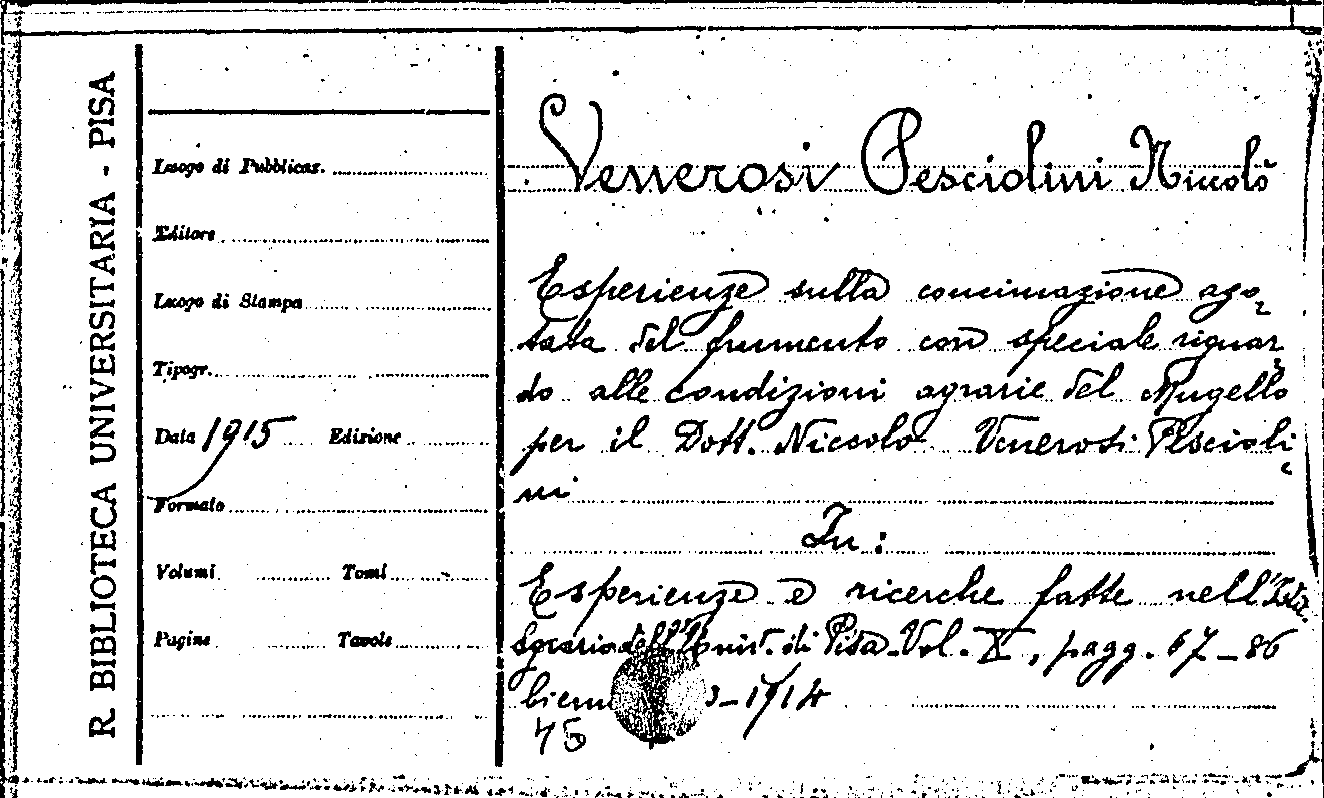 R BIBLIOTECA UNIVERSITARIA - PISA
Luogo di Pubblicaz.
Editore
Luogo di Stampa
Tipogr.
Data 1915 Edizione
Formato
Volumi Tomi
Pagine Tavole
Venerosi Pesciolini Niccolò
Esperienze sulla concimazione azo-
tata del frumento con speciale riguar-
do alle condizioni agrarie del Mugello
per il Dott. Niccolò Venerosi Pescioli-
ni
In:
Esperienze e ricerche fatte nell'Ist.
Agrario dell'Univ. di Pisa. Vol. X, pagg. 67-86
-1914
45